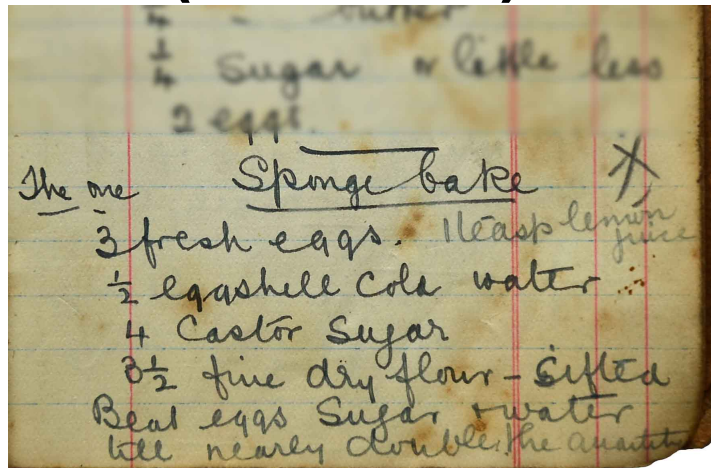 1/4 butter
1/4 Sugar or little less
2 eggs.
The one Sponge Cake X
3 fresh eggs. 1 teasp lemon juice
1/2 eggshell Cold water
4 Castor Sugar
3 1/2 fine dry flour - Sifted
Beat eggs Sugar & water
till nearly double the quantity